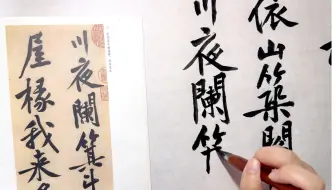 川夜闌箕斗
屋椽我来
依山築
川夜闌